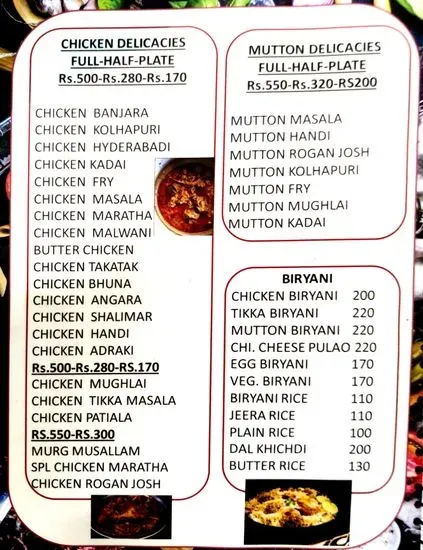 CHICKEN DELICACIES
FULL-HALF-PLATE
Rs.500-Rs.280-Rs.170
CHICKEN BANJARA
CHICKEN KOLHAPURI
CHICKEN HYDERABADI
CHICKEN KADAI
CHICKEN FRY
CHICKEN MASALA
CHICKEN MARATHA
CHICKEN MALWANI
BUTTER CHICKEN
CHICKEN TAKATAK
CHICKEN BHUNA
CHICKEN ANGARA
CHICKEN SHALIMAR
CHICKEN HANDI
CHICKEN ADRAKI
Rs.500-Rs.280-RS.170
CHICKEN MUGHLAI
CHICKEN TIKKA MASALA
CHICKEN PATIALA
RS.550-RS.300
MURG MUSALLAM
SPL CHICKEN MARATHA
CHICKEN ROGAN JOSH
MUTTON DELICACIES
FULL-HALF-PLATE
Rs.550-Rs.320-RS200
MUTTON MASALA
MUTTON HANDI
MUTTON ROGAN JOSH
MUTTON KOLHAPURI
MUTTON FRY
MUTTON MUGHLAI
MUTTON KADAI
BIRYANI
CHICKEN BIRYANI 200
TIKKA BIRYANI 220
MUTTON BIRYANI 220
CHI. CHEESE PULAO 220
EGG BIRYANI 170
VEG. BIRYANI 170
BIRYANI RICE 110
JEERA RICE 110
PLAIN RICE 100
DAL KHICHDI 200
BUTTER RICE 130